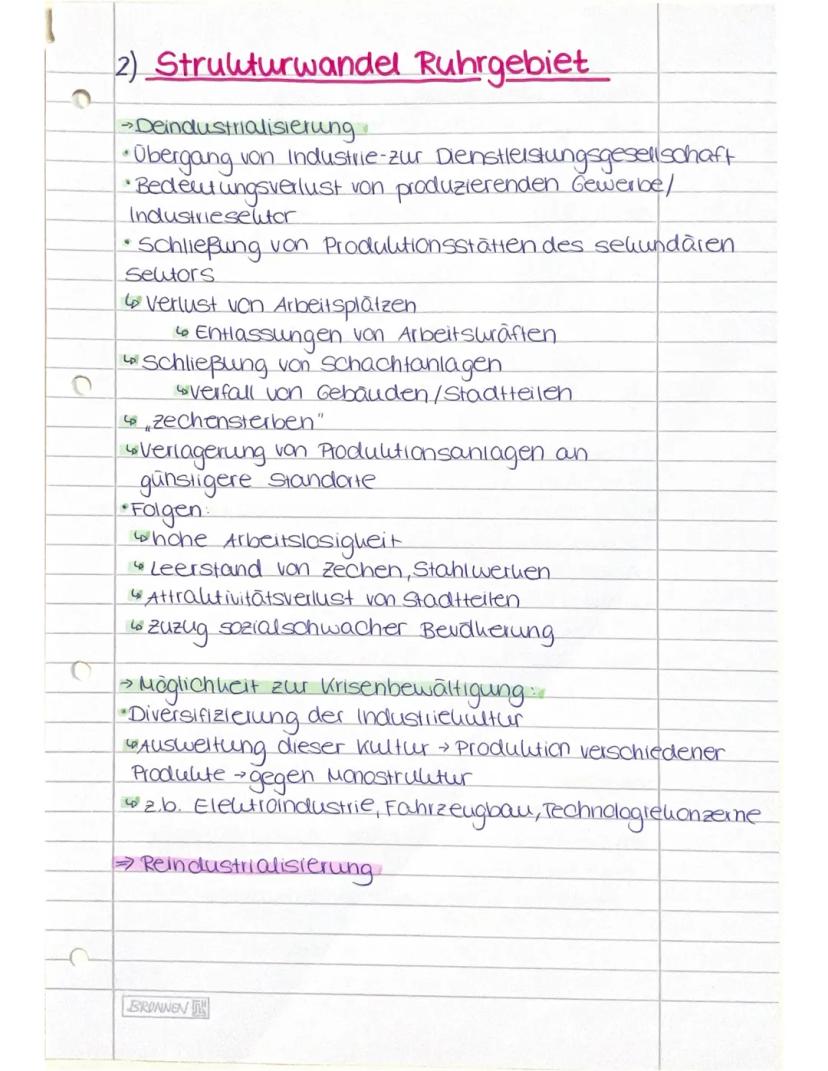 2) Strukturwandel Ruhrgebiet
→Deindustrialisierung
•Übergang von Industrie-zur Dienstleistungsgesellschaft
•Bedeutungsverlust von produzierenden Gewerbe/
Industriesektor
• Schließung von Produktionsstätten des sekundären
Sektors
↳ Verlust von Arbeitsplätzen
↳ Entlassungen von Arbeitskräften
↳ Schließung von Schachtanlagen
↳Verfall von Gebäuden/Stadtteilen
↳ „Zechensterben"
↳Verlagerung von Produktionsanlagen an
günstigere Standorte
•Folgen:
↳hohe Arbeitslosigkeit
↳ Leerstand von Zechen, Stahlwerken
↳ Attraktivitätsverlust von Stadtteilen
↳ Zuzug sozialschwacher Bevölkerung
→ Möglichkeit zur Krisenbewältigung:
•Diversifizierung der Industriekultur
↳Ausweitung dieser Kultur → Produktion verschiedener
Produkte → gegen Monostruktur
↳ z.b. Elektroindustrie, Fahrzeugbau, Technologiekonzerne
⇒ Reindustrialisierung
BRUNNEN